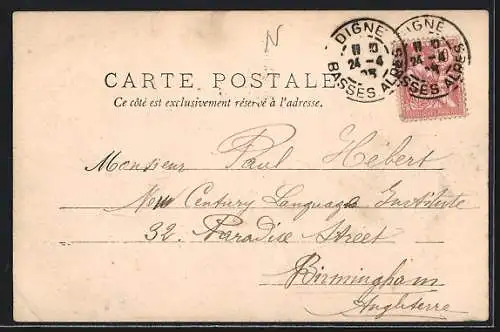 N
DIGNE
24 -4
BASSES ALPES
DIGNE
24 -4
BASSES ALPES
CARTE POSTALE
Ce côté est exclusivement réservé à l'adresse.
Monsieur Paul Hébert
New Century Languages Institute
32. Paradise Street
Birmingham
Angleterre